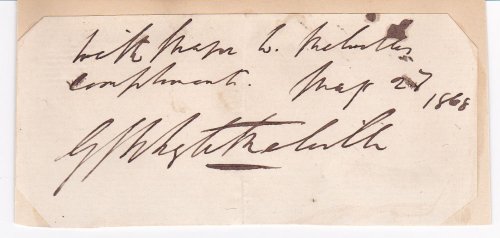 with Major W. Melville's
compliments. May 27
1868
G J Whyte Melville